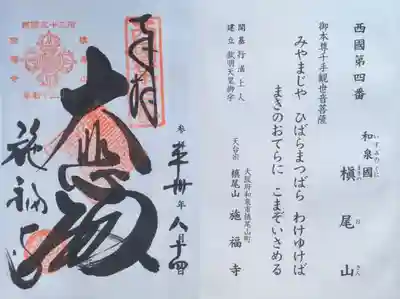 西國第四番
和泉國
いずみのくに
槇尾山
まきのおさん
御本尊千手観世音菩薩
みやまじや ひばらまつばら わけゆけば
まきのおてらに こまぞいさめる
開基 行満上人
建立 欽明天皇御宇
大阪府和泉市槇尾山町
天台宗 槇尾山 施福寺
奉拝
年八月十四
大悲殿
施福寺